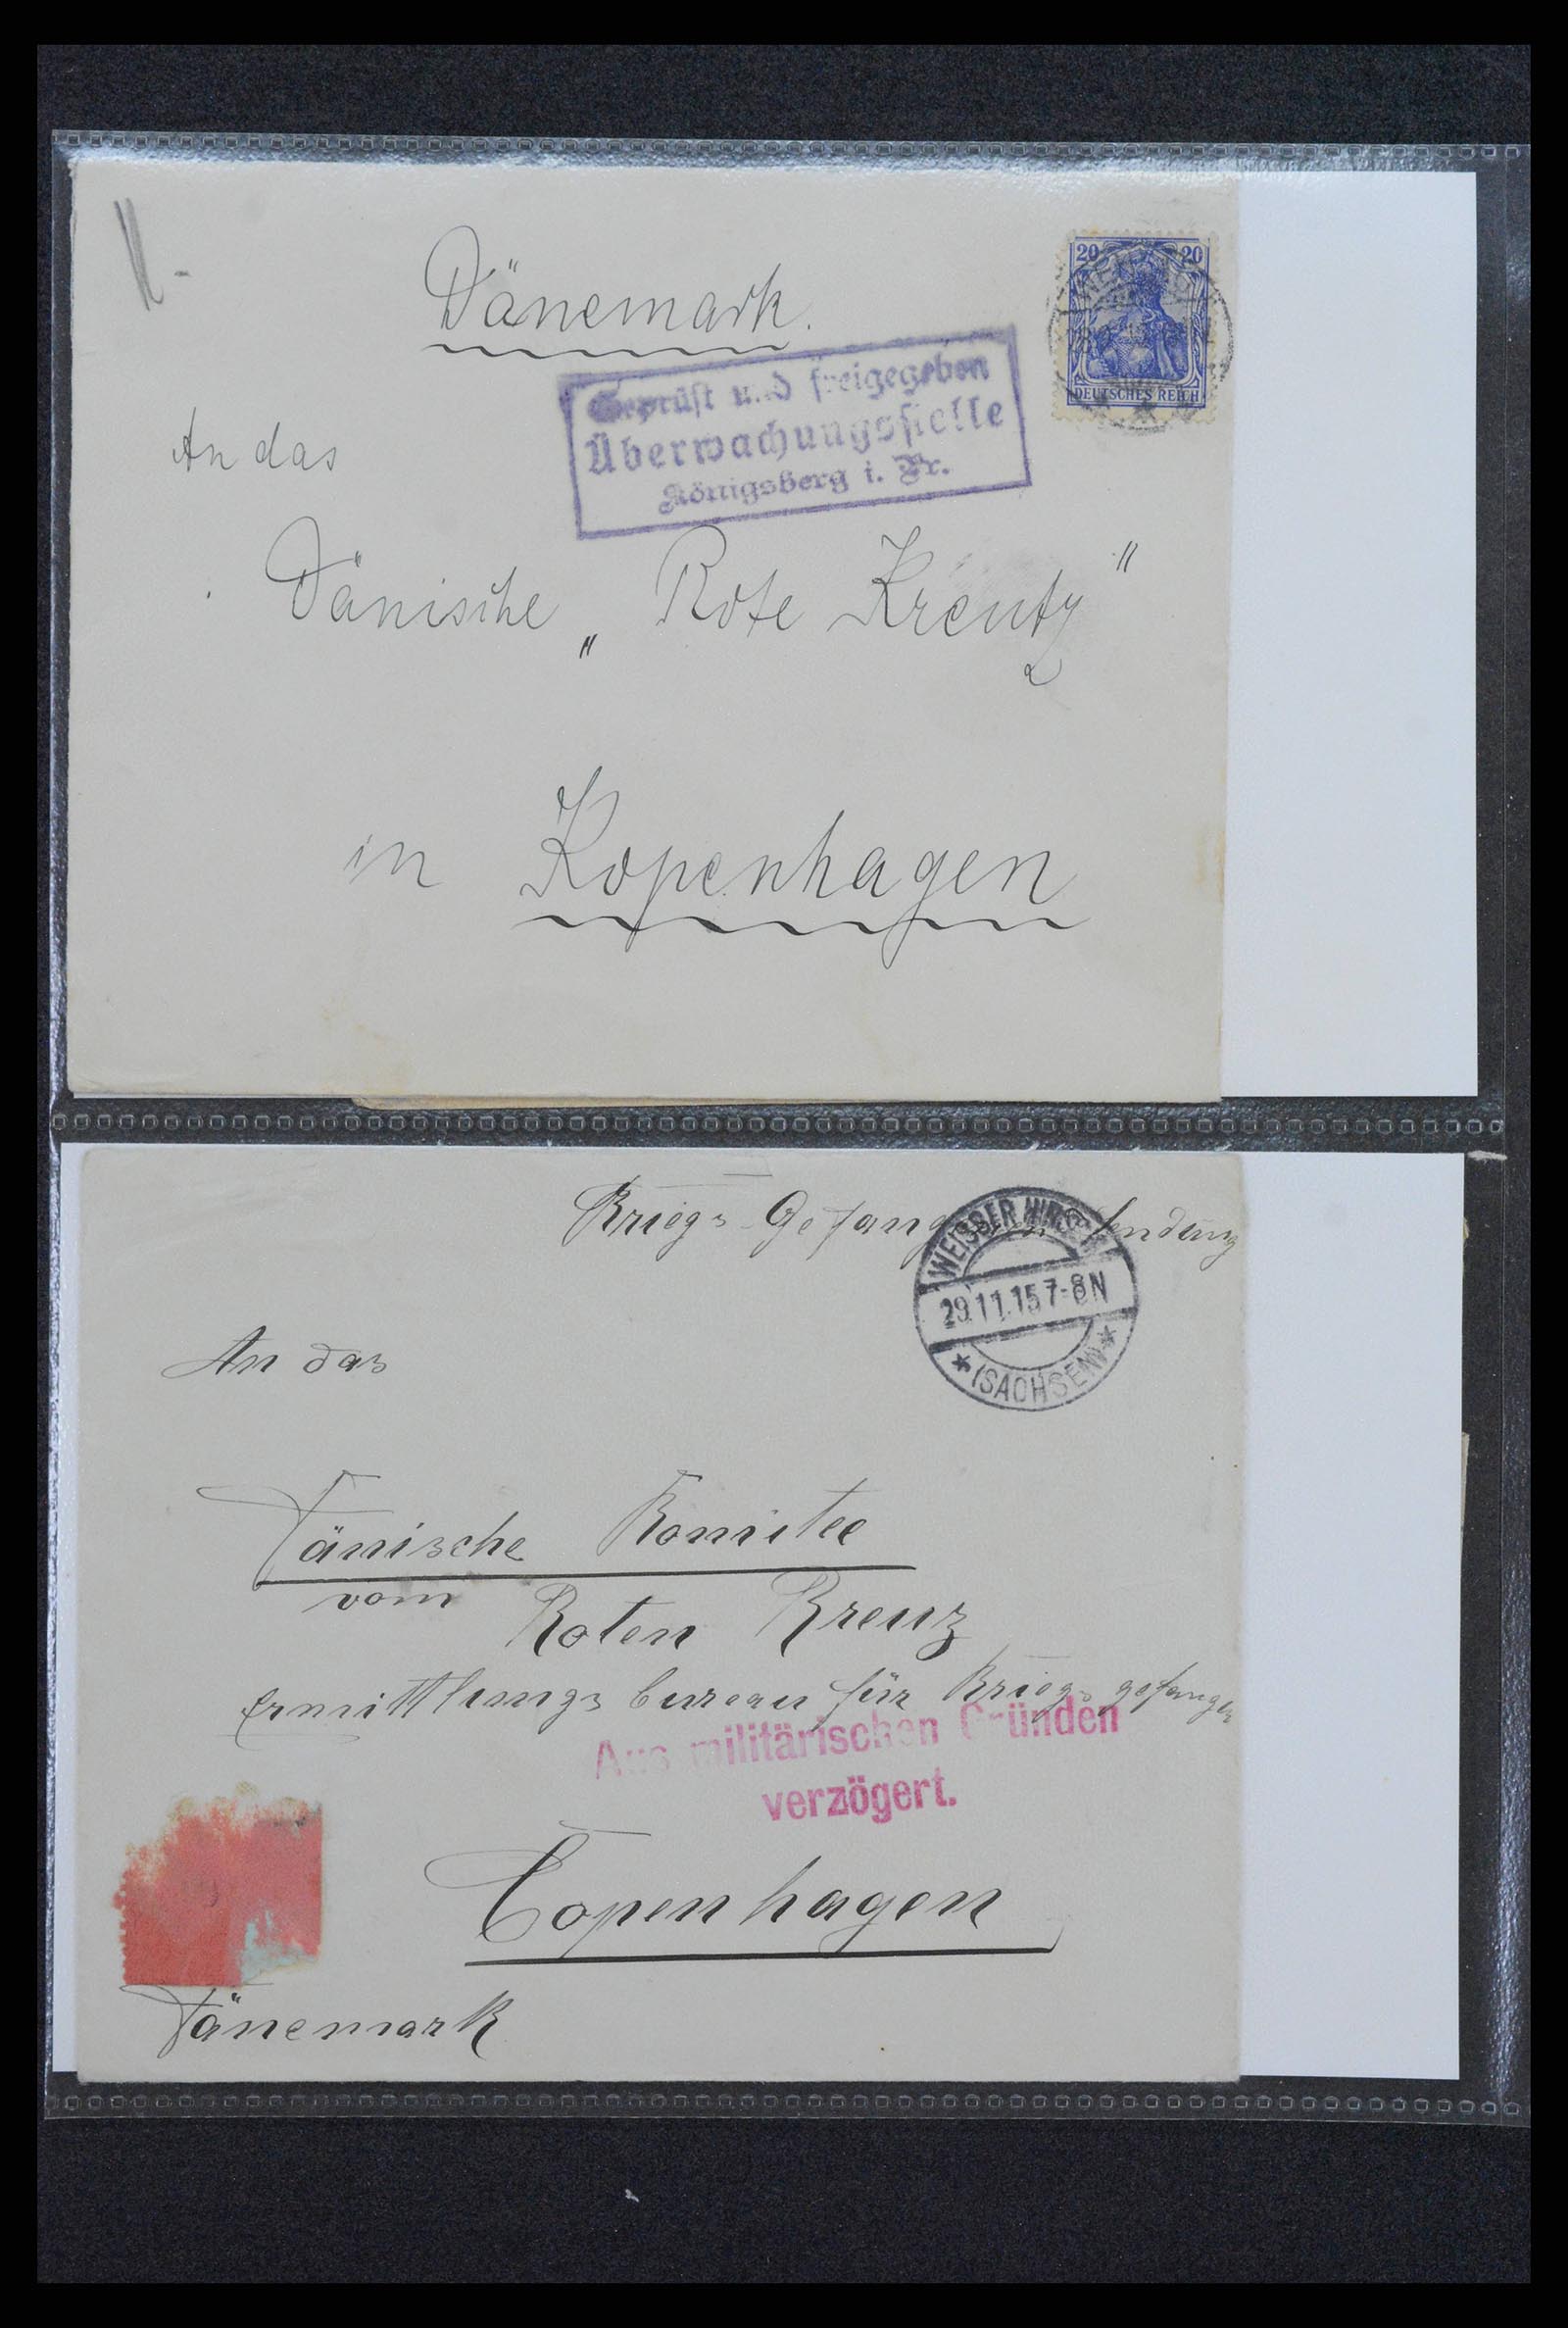 Dänemark.
20 20
DEUTSCHES REICH
Geprüft und freigegeben
Überwachungsstelle
Königsberg i. Pr.
An das
Dänische „Rote Kreutz"
in Kopenhagen
Kriegs-Gefangenen sendung
WEISSER HIRSCH
29.11.15 7-8N
* (SACHSEN) *
An das
Dänische Komitee
vom Roten Kreuz
Ermittlungs bureau für Kriegs gefangen
Aus militärischen Gründen
verzögert.
Copenhagen
Dänemark